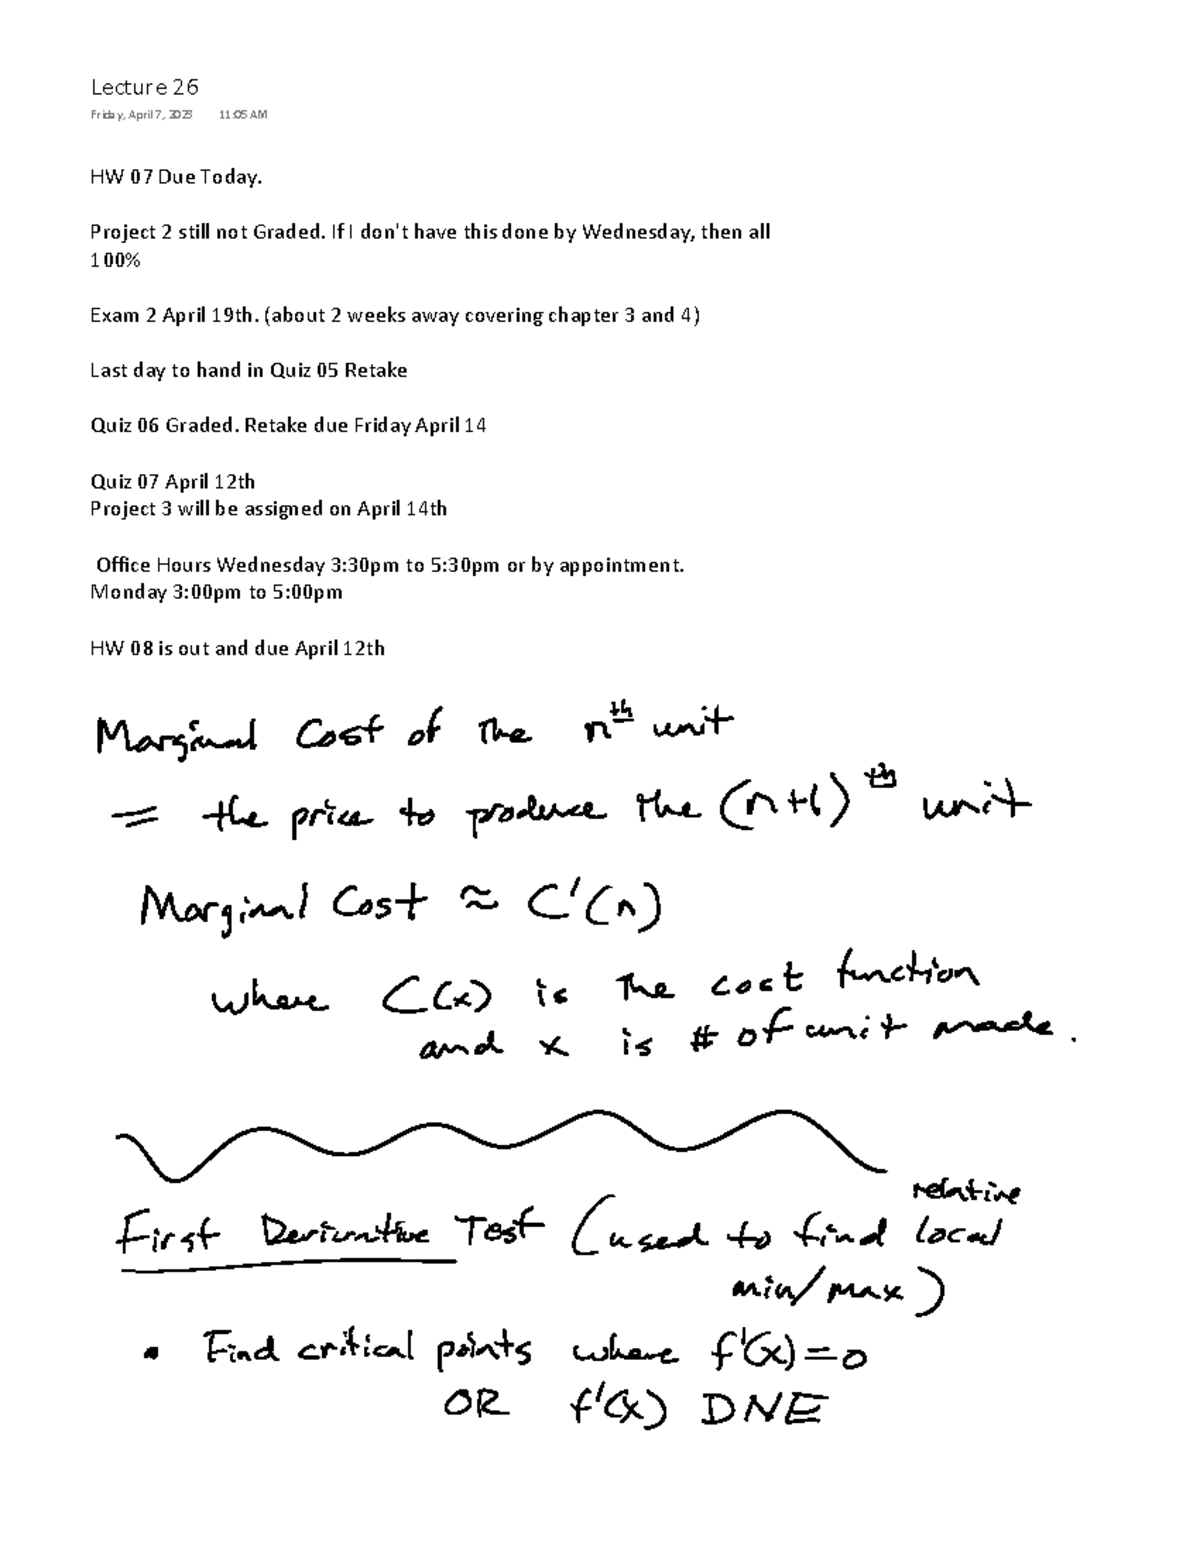 Lecture 26
Friday, April 7, 2023 11:05 AM
HW 07 Due Today.
Project 2 still not Graded. If I don't have this done by Wednesday, then all
100%
Exam 2 April 19th. (about 2 weeks away covering chapter 3 and 4)
Last day to hand in Quiz 05 Retake
Quiz 06 Graded. Retake due Friday April 14
Quiz 07 April 12th
Project 3 will be assigned on April 14th
Office Hours Wednesday 3:30pm to 5:30pm or by appointment.
Monday 3:00pm to 5:00pm
HW 08 is out and due April 12th
Marginal Cost of the nth unit
= the price to produce the (n+1)th unit
Marginal Cost ≈ C'(n)
where C(x) is the cost function
and x is # of unit made.
relative
First Derivative Test (used to find local
min/max)
• Find critical points where f'(x)=0
OR f'(x) DNE